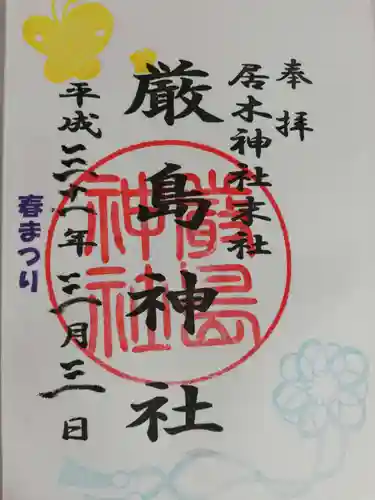 奉拝
居木神社末社
厳島神社
平成三十一年三月三日
春まつり
厳島神社